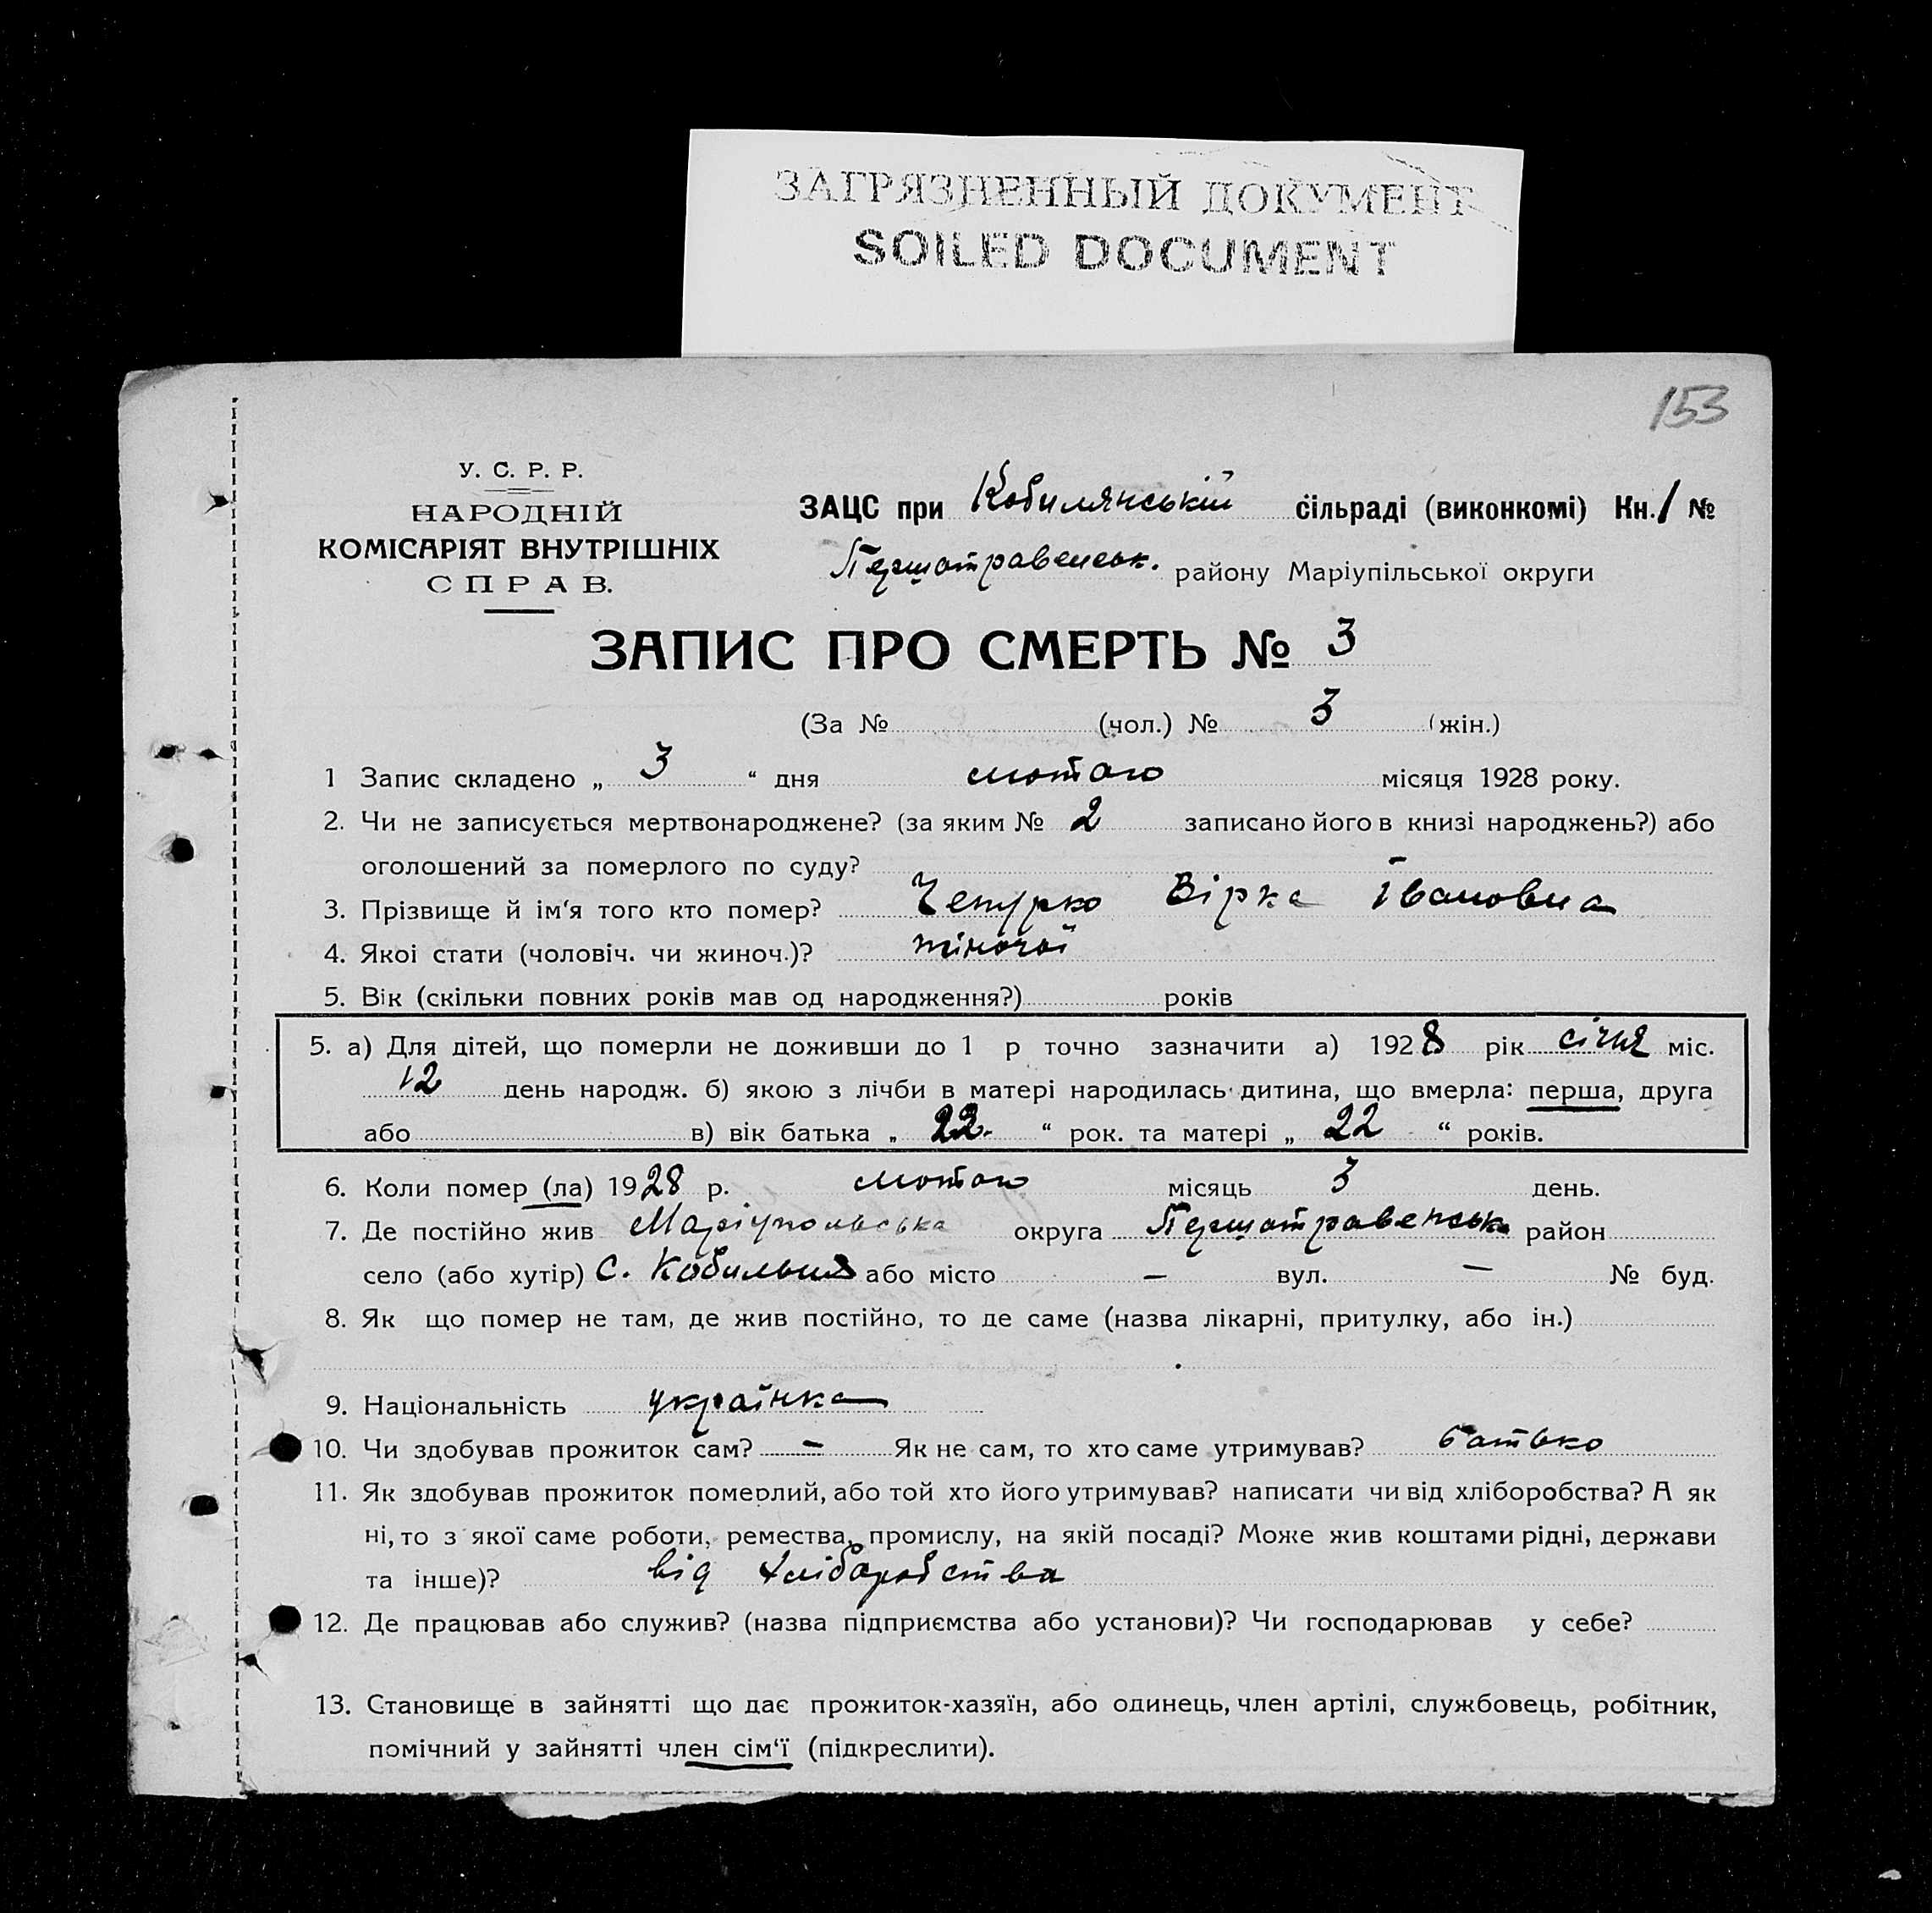 ЗАГРЯЗНЕННЫЙ ДОКУМЕНТ
SOILED DOCUMENT
153
У. С. Р. Р.
НАРОДНІЙ
КОМІСАРІЯТ ВНУТРІШНІХ
СПРАВ.
ЗАЦС при Кобилянській сільраді (виконкомі) Кн. 1 №
Першотравенськ. району Маріупільської округи
ЗАПИС ПРО СМЕРТЬ № 3
(За № (чол.) № 3 (жін.)
1 Запис складено „ 3 “ дня лютого місяця 1928 року.
2. Чи не записується мертвонароджене? (за яким № 2 записано його в книзі народжень?) або
оголошений за померлого по суду?
3. Прізвище й ім‘я того кто помер? Чепурко Вірка Івановна
4. Якоі стати (чоловіч. чи жиноч.)? жіночої
5. Вік (скільки повних років мав од народження?) років
5. а) Для дітей, що померли не доживши до 1 р точно зазначити а) 1928 рік січня міс.
12 день народж. б) якою з лічби в матері народилась дитина, що вмерла: перша, друга
або в) вік батька „ 22. “ рок. та матері „ 22 “ років.
6. Коли помер (ла) 1928 р. лютого місяць 3 день.
7. Де постійно жив Маріупольська округа Першотравенськ район
село (або хутір) с. Кобильня або місто — вул. — № буд.
8. Як що помер не там, де жив постійно, то де саме (назва лікарні, притулку, або ін.)
9. Національність українка
10. Чи здобував прожиток сам? – Як не сам, то хто саме утримував? батько
11. Як здобував прожиток померлий, або той хто його утримував? написати чи від хліборобства? А як
ні, то з якої саме роботи, ремества, промислу, на якій посаді? Може жив коштами рідні, держави
та інше)? від хліборобства
12. Де працював або служив? (назва підприємства або установи)? Чи господарював у себе?
13. Становище в зайнятті що дає прожиток-хазяїн, або одинець, член артілі, службовець, робітник,
помічний у зайнятті член сім‘ї (підкреслити).